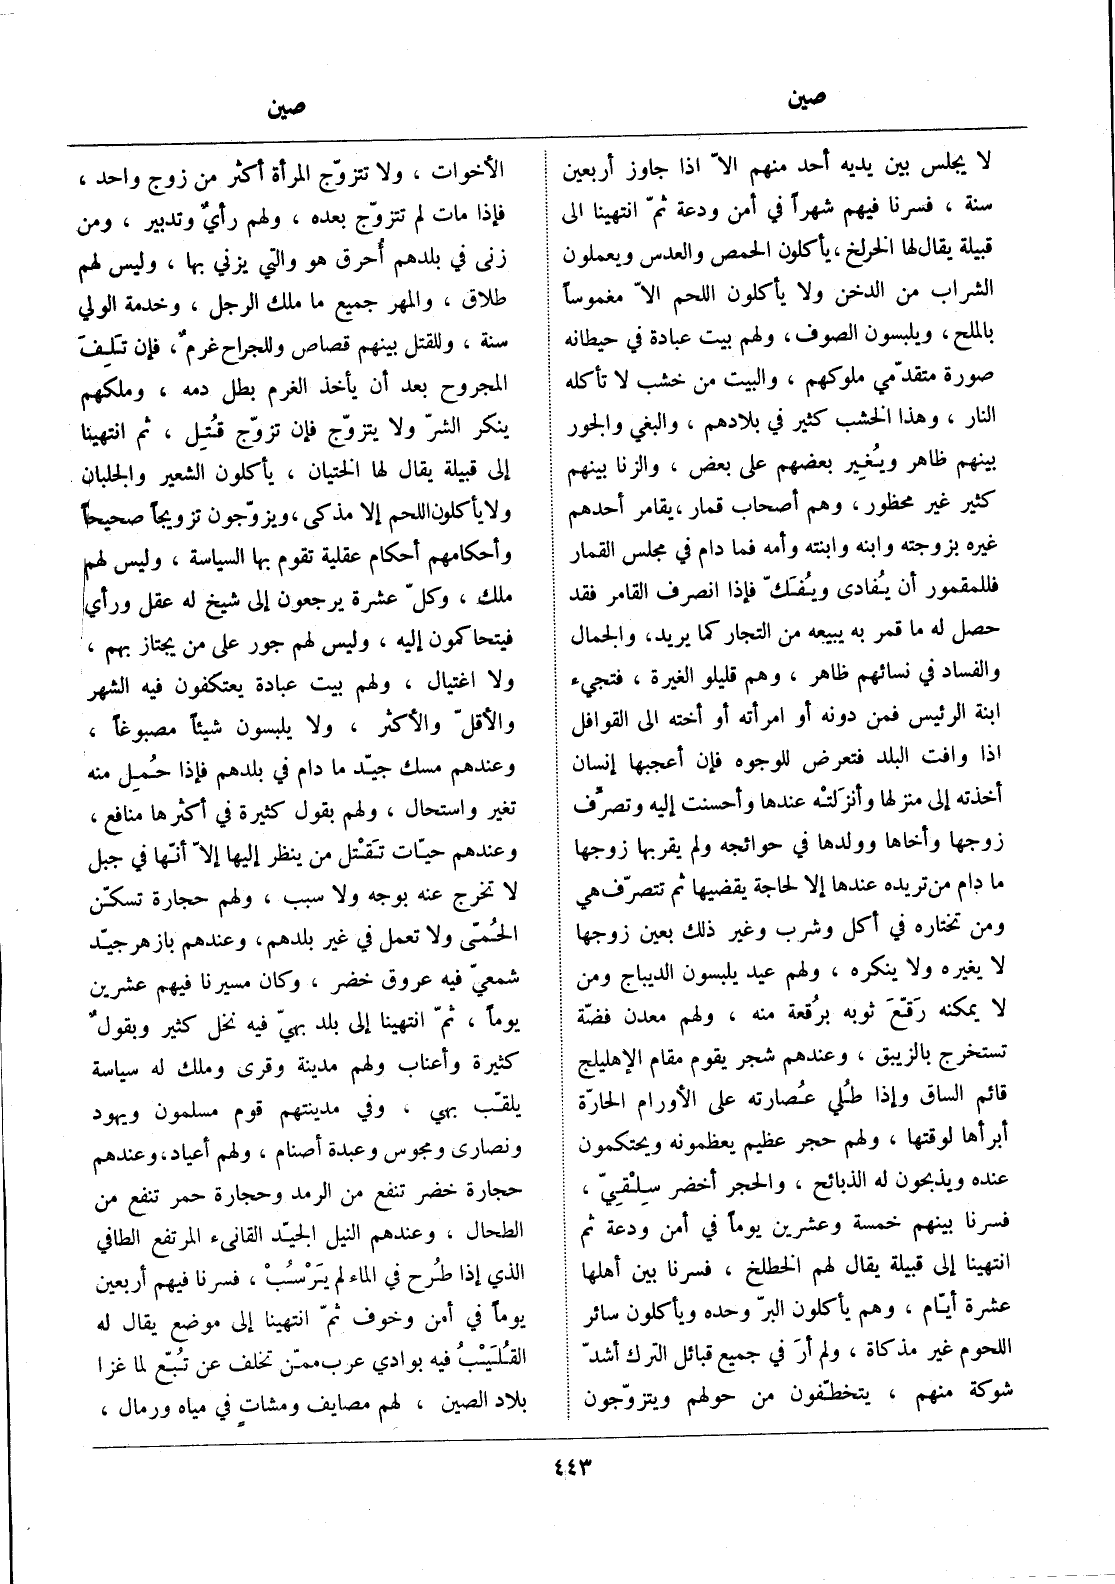 صين
صين
لا يجلس بين يديه أحد منهم الاّ اذا جاوز أربعين
سنة ، فسرنا فيهم شهراً في أمن ودعة ثمّ انتهينا الى
قبيلة يقال لها الخرلخ ، يأكلون الحمص والعدس ويعملون
الشراب من الدخن ولا يأكلون اللحم الاّ مغموساً
بالملح ، ويلبسون الصوف ، ولهم بيت عبادة في حيطانه
صورة متقدّمي ملوكهم ، والبيت من خشب لا تأكله
النار ، وهذا الخشب كثير في بلادهم ، والبغي والجور
بينهم ظاهر ويُغِير بعضهم على بعض ، والزنا بينهم
كثير غير محظور ، وهم أصحاب قمار ، يقامر أحدهم
غيره بزوجته وابنه وابنته وأمه فما دام في مجلس القمار
فللمقمور أن يُفادى ويُفَكّ فإذا انصرف القامر فقد
حصل له ما قمر به يبيعه من التجار كما يريد ، والجمال
والفساد في نسائهم ظاهر ، وهم قليلو الغيرة ، فتجيء
ابنة الرئيس فمن دونه أو امرأته أو أخته الى القوافل
اذا وافت البلد فتعرض للوجوه فإن أعجبها إنسان
أخذته إلى منزلها وأنزلتْه عندها وأحسنت إليه وتصرَّف
زوجها وأخاها وولدها في حوائجه ولم يقربها زوجها
ما دام من تريده عندها إلا لحاجة يقضيها ثم تتصرّف هي
ومن تختاره في أكل وشرب وغير ذلك بعين زوجها
لا يغيره ولا ينكره ، ولهم عيد يلبسون الديباج ومن
لا يمكنه رَقّعَ ثوبه برُقعة منه ، ولهم معدن فضّة
تستخرج بالزيبق ، وعندهم شجر يقوم مقام الإهليلج
قائم الساق وإذا طُلي عُصارته على الأورام الحارّة
أبرأها لوقتها ، ولهم حجر عظيم يعظمونه ويحتكمون
عنده ويذبحون له الذبائح ، والحجر أخضر سِلْقِيّ ،
فسرنا بينهم خمسة وعشرين يوماً في أمن ودعة ثم
انتهينا إلى قبيلة يقال لهم الخطلخ ، فسرنا بين أهلها
عشرة أيّام ، وهم يأكلون البرّ وحده ويأكلون سائر
اللحوم غير مذكاة ، ولم أرَ في جميع قبائل الترك أشدّ
شوكة منهم ، يتخطّفون من حولهم ويتزوّجون
الأخوات ، ولا تتزوّج المرأة أكثر من زوج واحد ،
فإذا مات لم تتزوّج بعده ، ولهم رأيٌ وتدبير ، ومن
زنى في بلدهم أُحرق هو والتي يزني بها ، وليس لهم
طلاق ، والمهر جميع ما ملك الرجل ، وخدمة الولي
سنة ، وللقتل بينهم قصاص وللجراح غرمٌ ، فإن تَلِفَ
المجروح بعد أن يأخذ الغرم بطل دمه ، وملكهم
ينكر الشرّ ولا يتزوّج فإن تزوّج قُتِل ، ثم انتهينا
إلى قبيلة يقال لها الختيان ، يأكلون الشعير والجلبان
ولا يأكلون اللحم إلا مذكى ، ويزوّجون تزويجاً صحيحاً
وأحكامهم أحكام عقلية تقوم بها السياسة ، وليس لهم
ملك ، وكلّ عشرة يرجعون إلى شيخ له عقل ورأي
فيتحاكمون إليه ، وليس لهم جور على من يجتاز بهم ،
ولا اغتيال ، ولهم بيت عبادة يعتكفون فيه الشهر
والأقلّ والأكثر ، ولا يلبسون شيئاً مصبوغاً ،
وعندهم مسك جيّد ما دام في بلدهم فإذا حُمِل منه
تغير واستحال ، ولهم بقول كثيرة في أكثرها منافع ،
وعندهم حيّات تَقْتل من ينظر إليها إلاّ أنّها في جبل
لا تخرج عنه بوجه ولا سبب ، ولهم حجارة تسكّن
الحُمّى ولا تعمل في غير بلدهم ، وعندهم بازهر جيّد
شمعيّ فيه عروق خضر ، وكان مسيرنا فيهم عشرين
يوماً ، ثمّ انتهينا إلى بلد بهيّ فيه نخل كثير وبقولٌ
كثيرة وأعناب ولهم مدينة وقرى وملك له سياسة
يلقّب بهي ، وفي مدينتهم قوم مسلمون ويهود
ونصارى ومجوس وعبدة أصنام ، ولهم أعياد ، وعندهم
حجارة خضر تنفع من الرمد وحجارة حمر تنفع من
الطحال ، وعندهم النيل الجيّد القانىء المرتفع الطافي
الذي إذا طُرح في الماء لم يَرْسُبْ ، فسرنا فيهم أربعين
يوماً في أمن وخوف ثمّ انتهينا إلى موضع يقال له
القُلَيْبُ فيه بوادي عرب ممّن تخلف عن تُبّع لما غزا
بلاد الصين ، لهم مصايف ومشاتٍ في مياه ورمال ،
٤٤٣